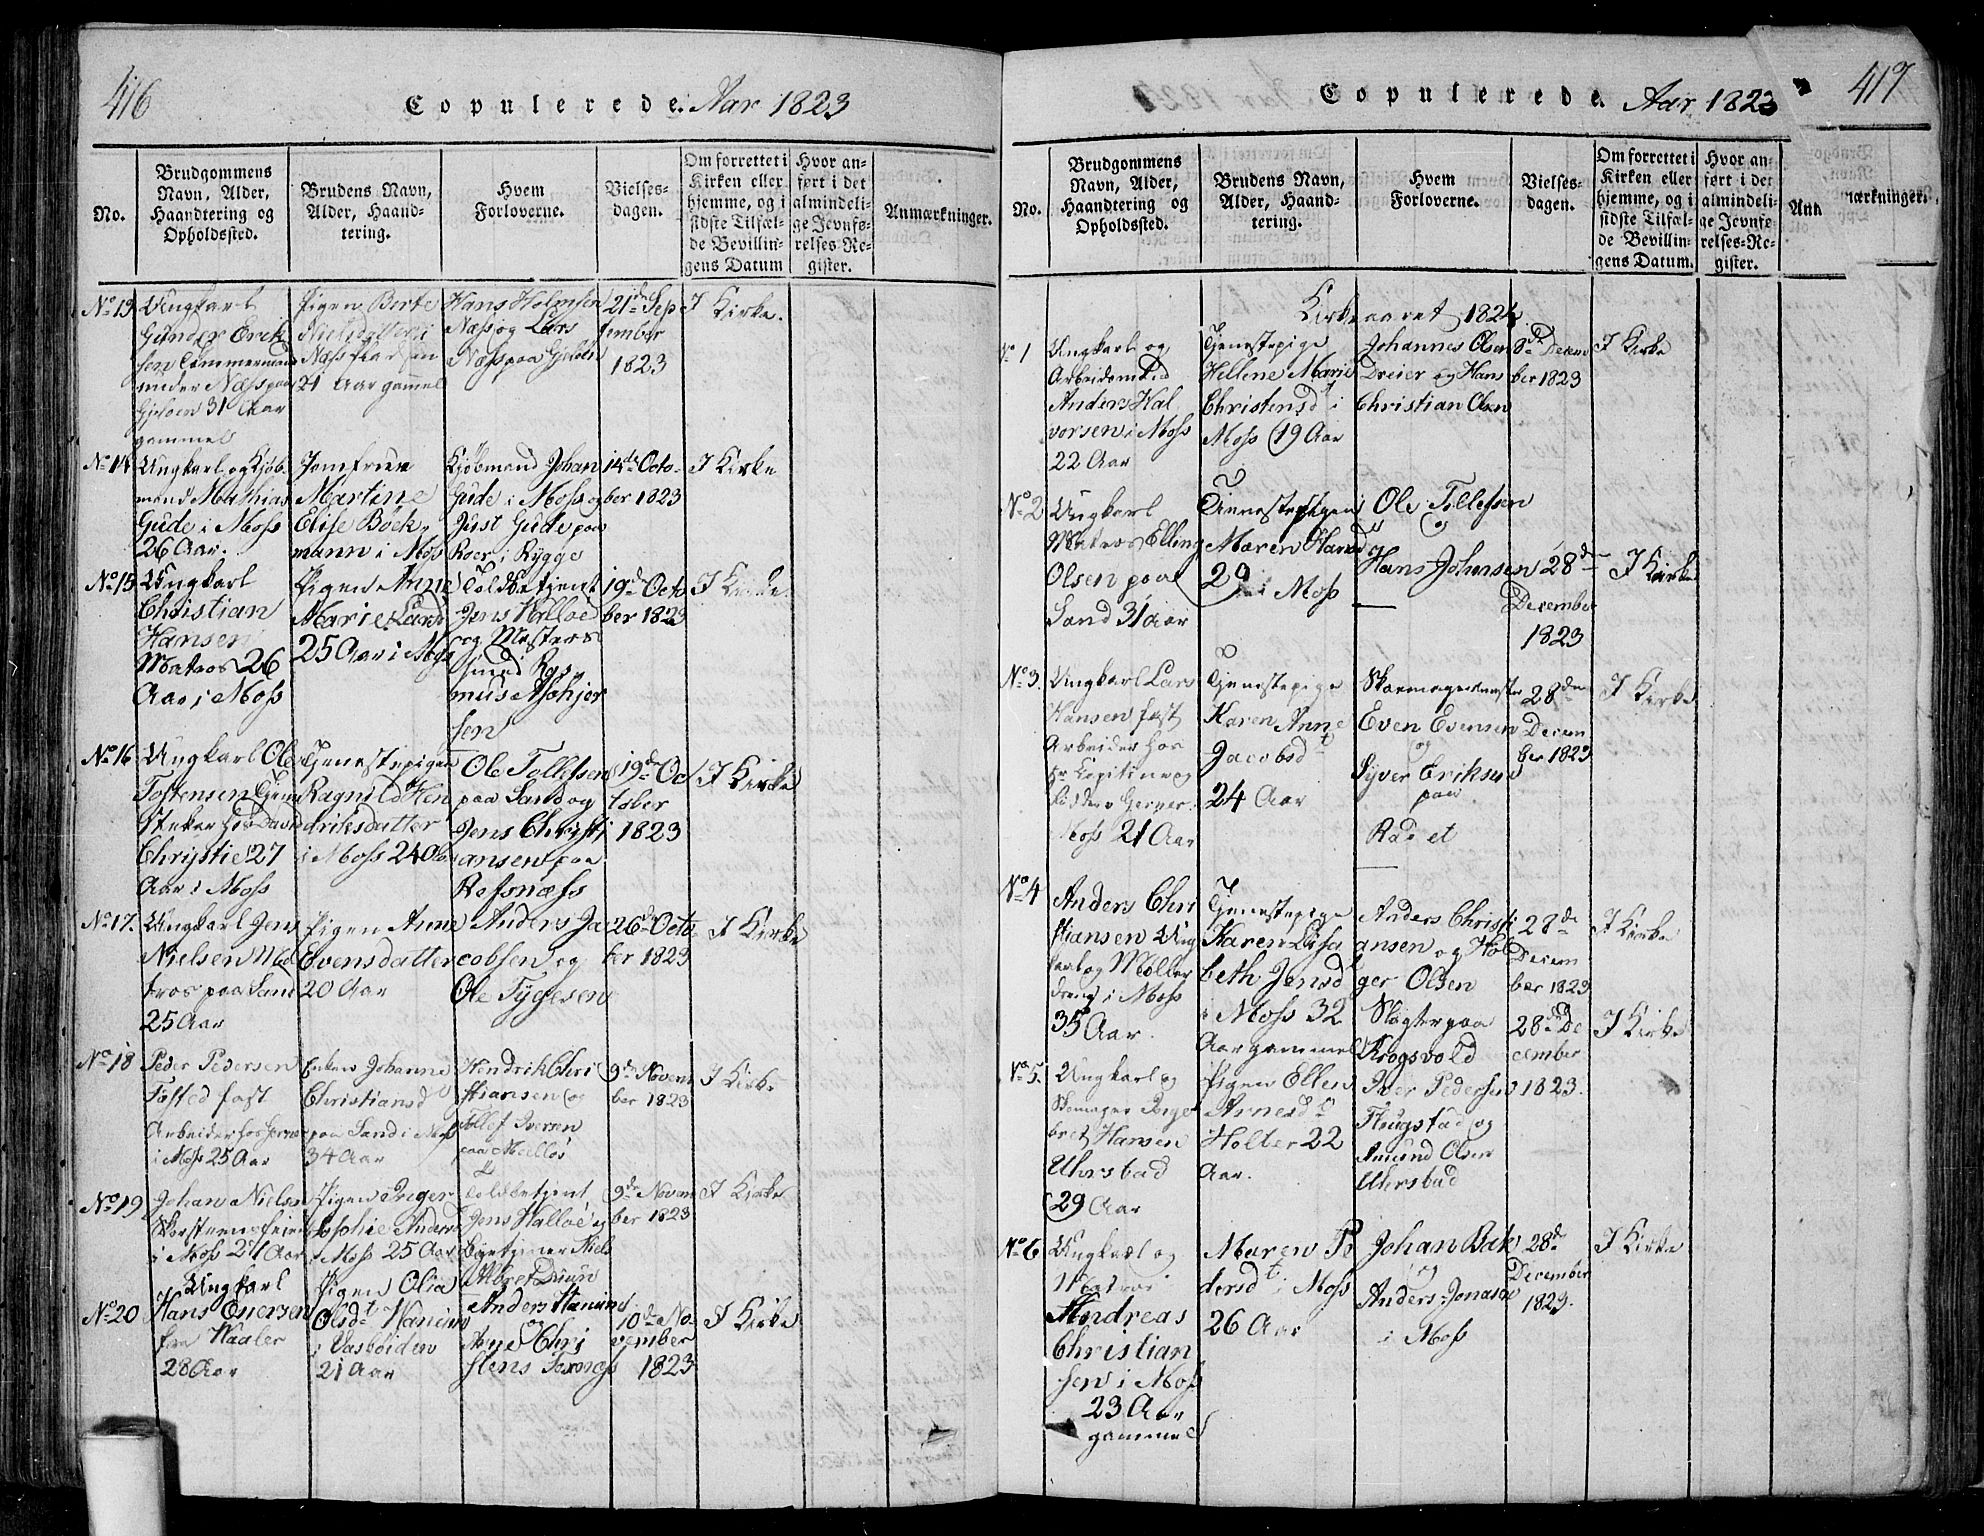 416
Copulerede. Aar 1823
No.
Brudgommens
Navn, Alder,
Haandtering og
Opholdssted.
Brudens Navn,
Alder, Haand-
tering.
Hvem
Forloverne.
Vielses-
dagen.
Om forrettet i
Kirken eller
hjemme, og i
sidste Tilfæl-
de Bevillin-
gens Datum
Hvor an-
ført i det
almindeli-
ge Jevnfø-
relses-Re-
gister.
Anmærkninger.
No 13
Ungkarl
Gunder Erik
sen
under Næss paa
Gjeløen 31 Aar
gammel
Pigen Birte
Nielsdatter i
Næss
21 Aar gammel
Hans Holmsen
Næss og Lars
Næss paa Gjeløen
21de Sep
tember
1823
I Kirke.
No 14
Ungkarl og Kjøb-
mand Mathias
Gude i Moss
26 Aar.
Jomfruen
Martine
Elise Bøck-
mann i Moss
Kjøbmand Johan
Gude i Moss og
Just Gude paa
Roer i Rygge
14de Octo-
ber 1823
I Kirke
No 15
Ungkarl
Christian
Hansen
Matros 26
Aar i Moss
Pigen Anne
Marie Larsd
25 Aar i Moss
Toldbetjent
Jens Halloe
og Mester
smed Ras-
mus Asbhjør
sen
19de Octo
ber 1823
I Kirke
No 16
Ungkarl Ole
Tostensen Tjene
stekar hos David
Chrystie 27
Aar i Moss
Tjenestepigen
Ragnild Hen
driksdatter
i Moss 24 Aar
Ole Tollefsen
paa Sand og
Jens Christi
ansen paa
Refsnæss
19de Oc
tober
1823
I Kirke
No 17.
Ungkarl Jens
Nielsen Ma
tros paa Sand
25 Aar
Pigen Anne
Evensdatter
20 Aar
Anders Ja
cobsen og
Ole Tygesen
26de Octo
ber 1823
I Kirke
No 18
Peder Pedersen
Tosted fast
Arbeider hos
i Moss 25 Aar
Enken Johanne
Christiansd
paa Sand i Moss
34 Aar
Hendrik Chri
stiansen og
Tollef Iversen
paa Melløs
9de Novem
ber 1823
I Kirke
No 19
Johan Nielsen
Skorsteensfeier
i Moss 27 Aar
Pigen Inger
Sophie Andersd
i Moss 25 Aar
Toldbetjent
Jens Halloe og
Bytjener Niels
Albret
9de Novem
ber 1823
I Kirke
No 20
Ungkarl
Hans Enersen
fra Haaler
28 Aar
Pigen Olia
Olsdt
i
21 Aar
Anders
og
Arne Chri
stens
10de No
vember
1823
I Kirke
417
Copulerede. Aar 1823
No.
Brudgommens
Navn, Alder,
Haandtering og
Opholdssted.
Brudens Navn,
Alder, Haand-
tering.
Hvem
Forloverne.
Vielses-
dagen.
Om forrettet i
Kirken eller
hjemme, og i
sidste Tilfæl-
de Bevillin-
gens Datum.
Hvor an-
ført i det
almindeli-
ge Jevnfø-
relses-Re-
gister.
Anm
mærkninger.
Kirkeaaret 1824
No 1
Ungkarl og
Arbeidsmand
Anders Hal
vorsen i Moss
22 Aar
Tjenestepige
Hellene Marie
Christensd i
Moss 19 Aar
Johannes Olsen
Dreier og Hans
Christian Olsen
8de Decem
ber 1823
I Kirke
No 2
Ungkarl
Matros Elling
Olsen paa
Sand 31 Aar
Tjenestepigen
Maren
29 i Moss
Ole Tollefsen
og
Hans Johnsen
28de
December
1823
I Kirke
No 3.
Ungkarl Lars
Hansen fast
Arbeider hos
Hr Capitine og
Moss 21 Aar
Tjenestepige
Karen Anne
Jacobsdt
24 Aar
Skomagermester
Even Evensen
og
Syver Eriksen
paa
Rad et
28de
Decem
ber 1823
I Kirke
No 4
Anders Chri
stiansen Ung
karl og Møller
dreng i Moss
35 Aar.
Tjenestepige
Karen Elisa
beth Jensd
i Moss 32
Aar gammel
Anders Christi
ansen og Hol
ger Olsen
Slagter paa
Krogsvold
28de
Decem
ber 1823
I Kirke
No 5.
Ungkarl og
Skomager Inge
bret Hansen
Uhrsbad
29 Aar
Pigen Ellen
Arnesdt
Holter 22
Aar.
Iver Pedersen
Flugstad og
Amund Olsen
Uhrsbad
28de De
cember
1823.
I Kirke
No 6
Ungkarl og
Matros
Andreas
Christian
sen i Moss
23 Aar
gammel
Maren Pe
dersdt i Moss
26 Aar
Johan Bak
og
Anders Jonasen
i Moss
28de
December
1823.
I Kirke